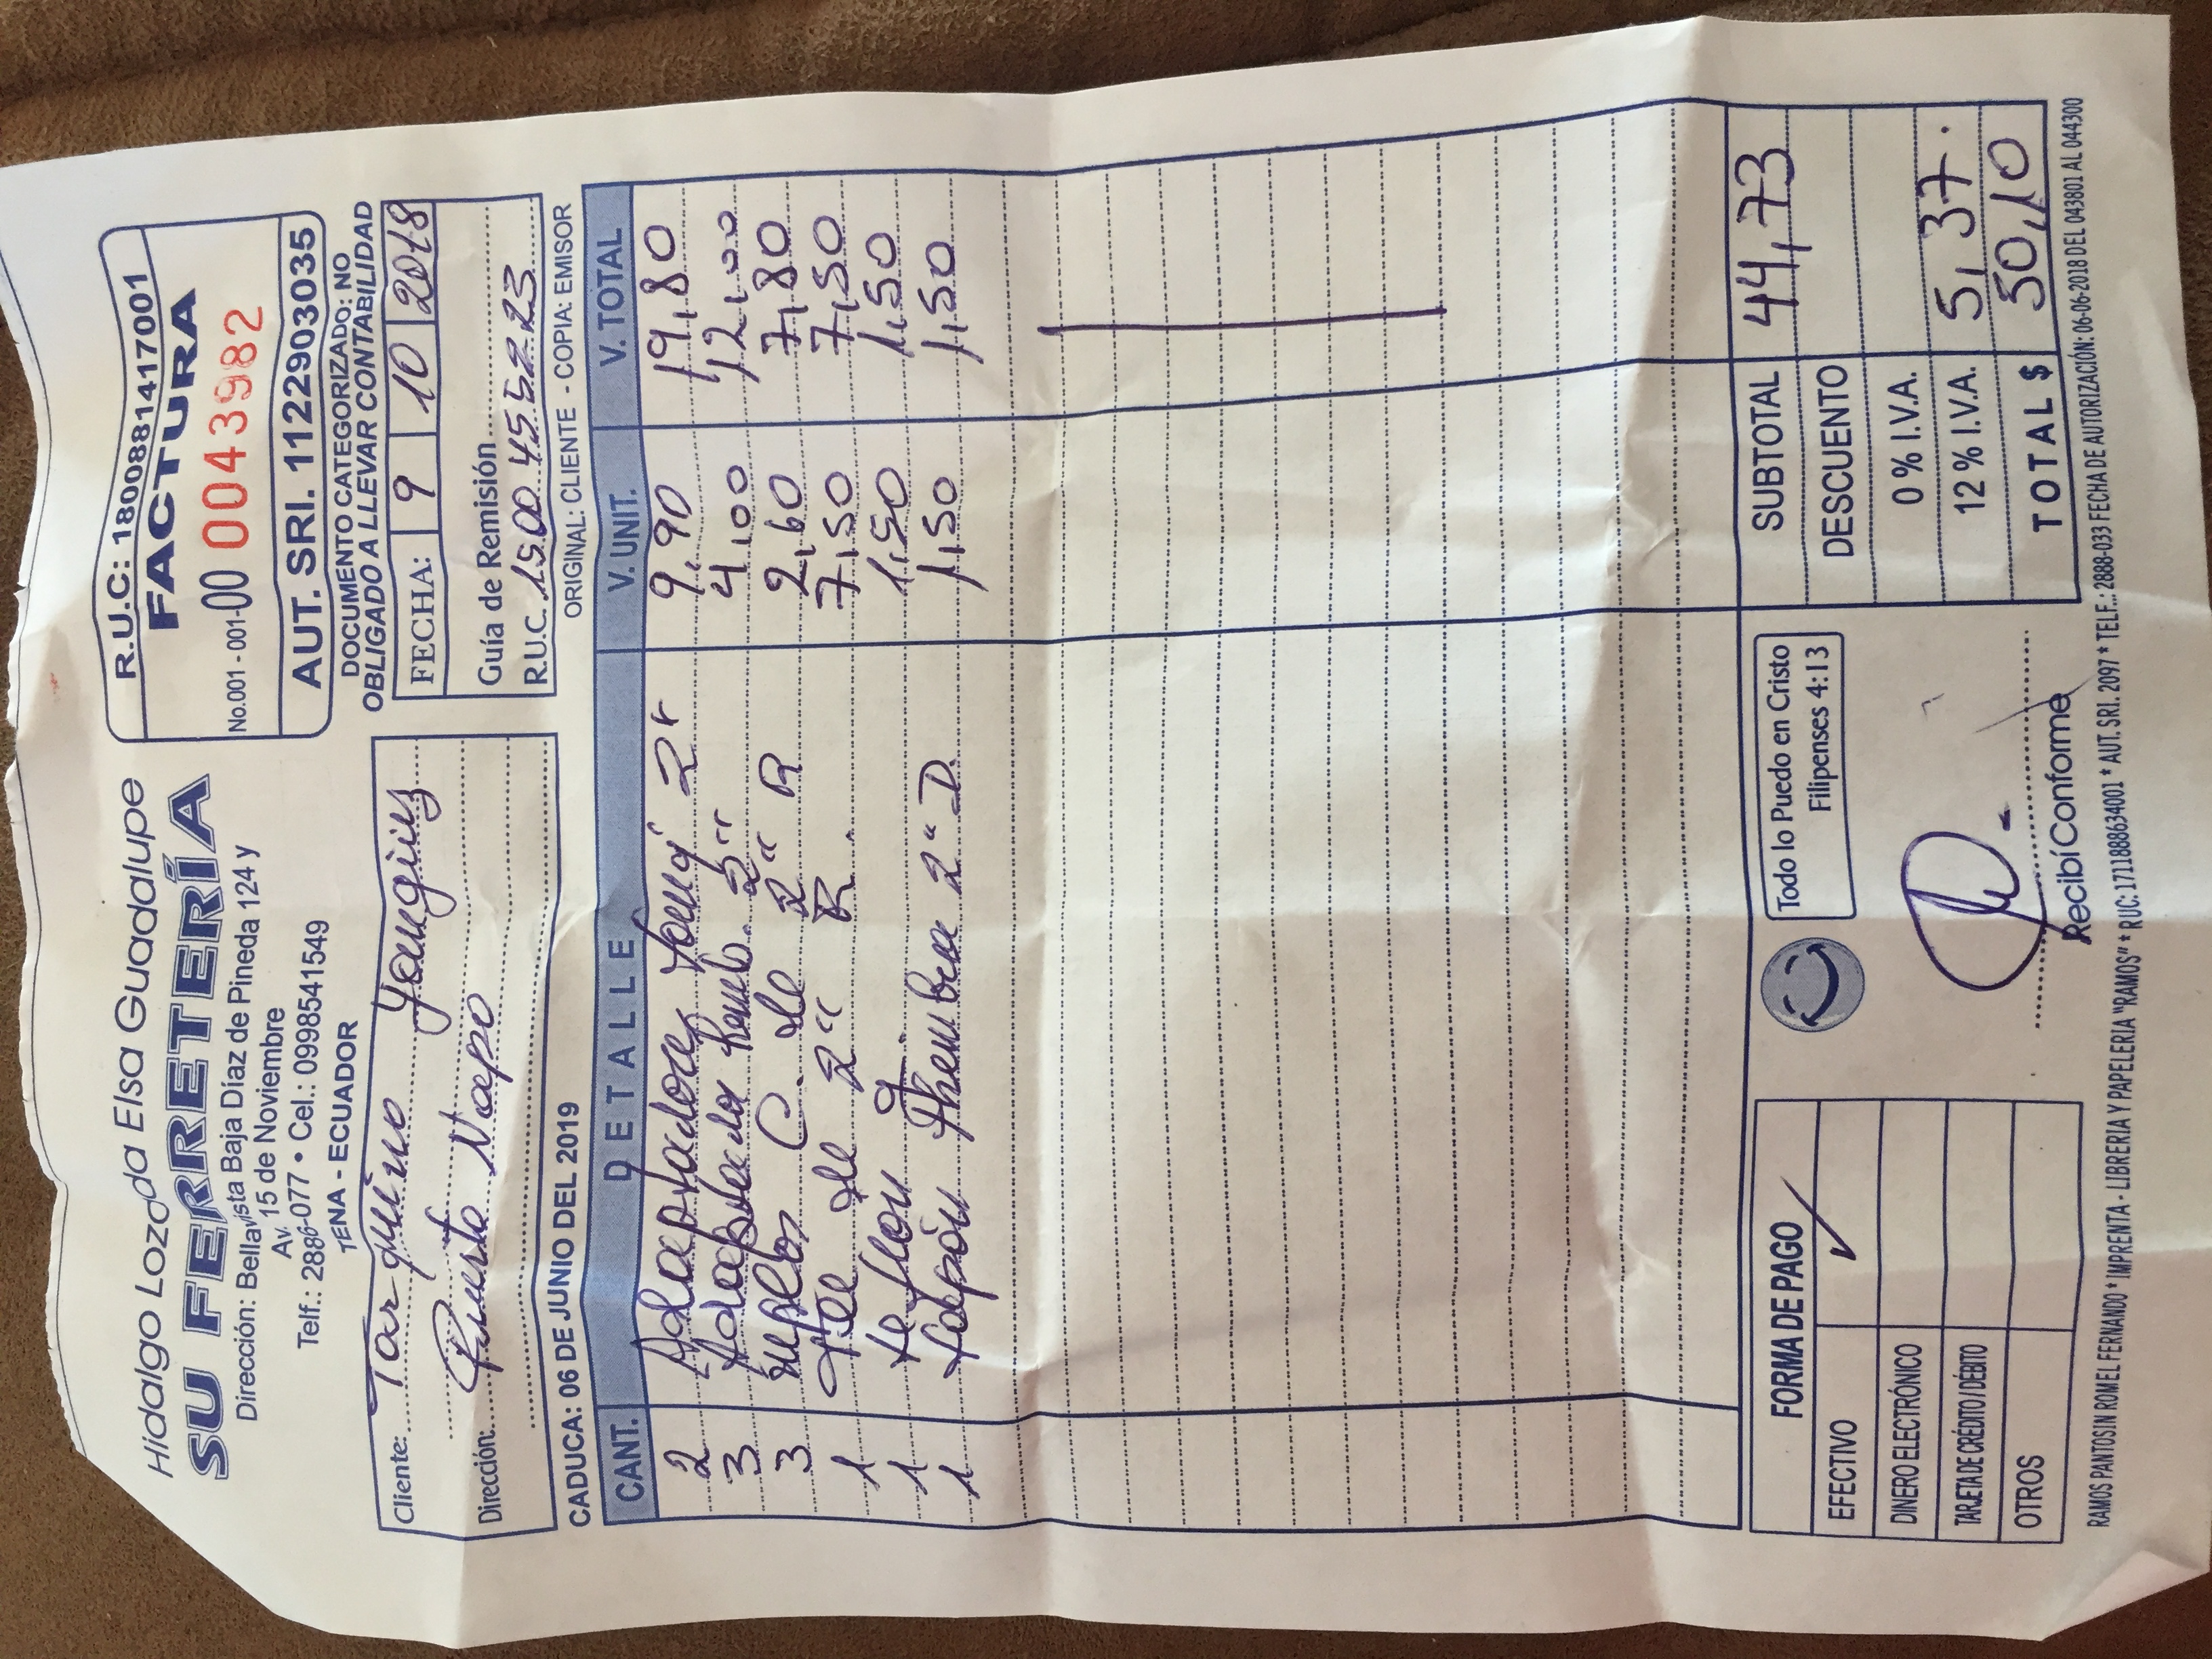 Hidalgo Lozada Elsa Guadalupe
SU FERRETERÍA
Dirección: Bellavista Baja Díaz de Pineda 124 y
Av. 15 de Noviembre
Telf.: 2886-077 • Cel.: 0998541549
TENA - ECUADOR
R.U.C: 1800881417001
FACTURA
No.001 - 001-00 0043982
AUT. SRI. 1122903035
DOCUMENTO CATEGORIZADO: NO
OBLIGADO A LLEVAR CONTABILIDAD
FECHA: 9 10 2018
Cliente: Tarquino Yanguiz
Punta Napo
Dirección:
Guía de Remisión
R.U.C. 1500 455223
CADUCA: 06 DE JUNIO DEL 2019
ORIGINAL: CLIENTE - COPIA: EMISOR
CANT. DETALLE V. UNIT. V. TOTAL
2 Adaptadores 2" 9,90 19,80
3 Adaptador 2" 4,00 12,00
3 C. de 2" R 2,60 7,80
1 tee de 2" R. 7,50 7,50
1 teflon g 1,50 1,50
1 tapón hembra 2" D. 1,50 1,50
FORMA DE PAGO
EFECTIVO ✓
DINERO ELECTRÓNICO
TARJETA DE CRÉDITO / DÉBITO
OTROS
Todo lo Puedo en Cristo
Filipenses 4:13
Recibí Conforme
SUBTOTAL 44,73
DESCUENTO
0 % I.V.A.
12 % I.V.A. 5,37.
TOTAL $ 50,10
RAMOS PANTOSIN ROMEL FERNANDO * IMPRENTA - LIBRERIA Y PAPELERIA "RAMOS" * RUC: 1711888634001 * AUT. SRI. 2097 * TELF.: 2888-033 FECHA DE AUTORIZACIÓN: 06-06-2018 DEL 043801 AL 044300